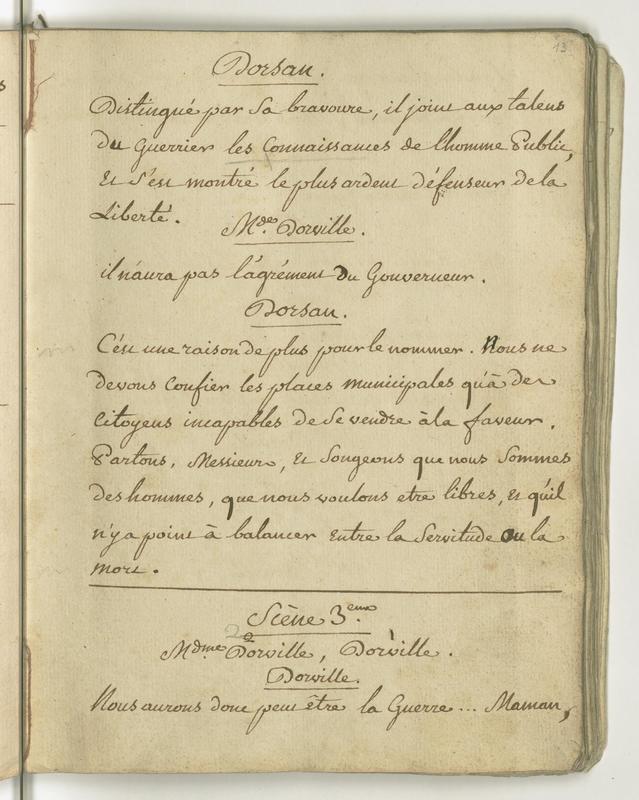 13
Dorsan.
Distingué par sa bravoure, il joint aux talens
du Guerrier les Connaissances de l'homme Public,
Et s'est montré le plus ardent défenseur de la
Liberté.
M.de Dorville.
il n'aura pas l'agrément du Gouverneur.
Dorsan.
C'est une raison de plus pour le nommer. Nous ne
devons Confier les places municipales qu'à des
Citoyens incapables de se vendre à la faveur.
Partons, Messieurs, Et Songeons que nous Sommes
des hommes, que nous voulons etre libres, Et qu'il
n'y a point à balancer Entre la Servitude ou la
mort.
Scène 3.eme
Mdme Dorville, Dorville.
Dorville.
Nous aurons donc peut être la Guerre... Maman,